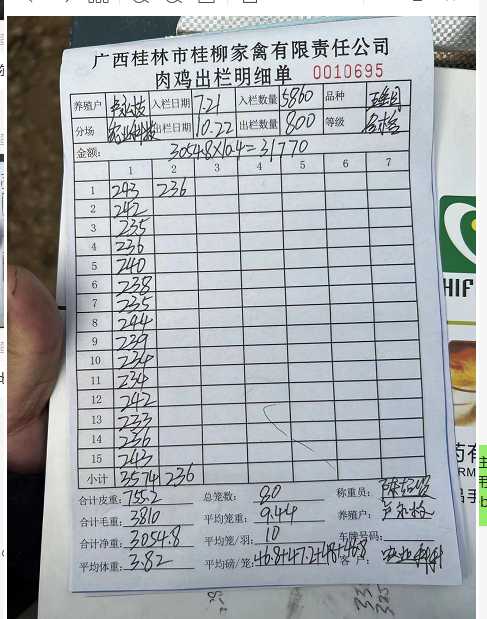 广西桂林市桂柳家禽有限责任公司
肉鸡出栏明细单 0010695
养殖户 入栏日期 7.21 入栏数量 5860 品种
分场 出栏日期 10.22 出栏数量 800 等级 合格
金额: 3054.8×10.4=31770
1 2 3 4 5 6 7
1 243 236
2 242
3 235
4 236
5 240
6 238
7 235
8 244
9 239
10 234
11 234
12 242
13 233
14 236
15 243
小计 3574 236
合计皮重: 755.2 总笼数: 80 称重员:
合计毛重: 3810 平均笼重: 9.44 养殖户:
合计净重: 3054.8 平均笼/羽: 10 车牌号码:
平均体重: 3.82 平均磅/笼: 46.8+47.2+48+46.8 客户:
HIF